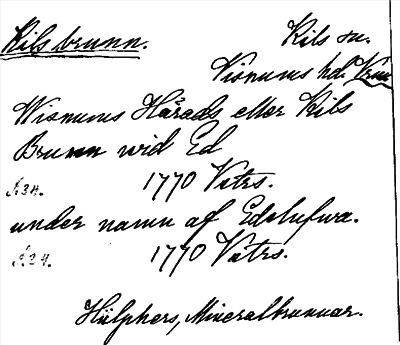 Kilsbrunn.
Kils sn.
Visnums hd. Vrm
Wisnums Härads eller Kils
Brunn wid Ed
S. 34. 1770 Vetrs.
under namn af Edslufwa.
S. 34. 1770 Vetrs.
Hülphers, Mineralbrunnar.